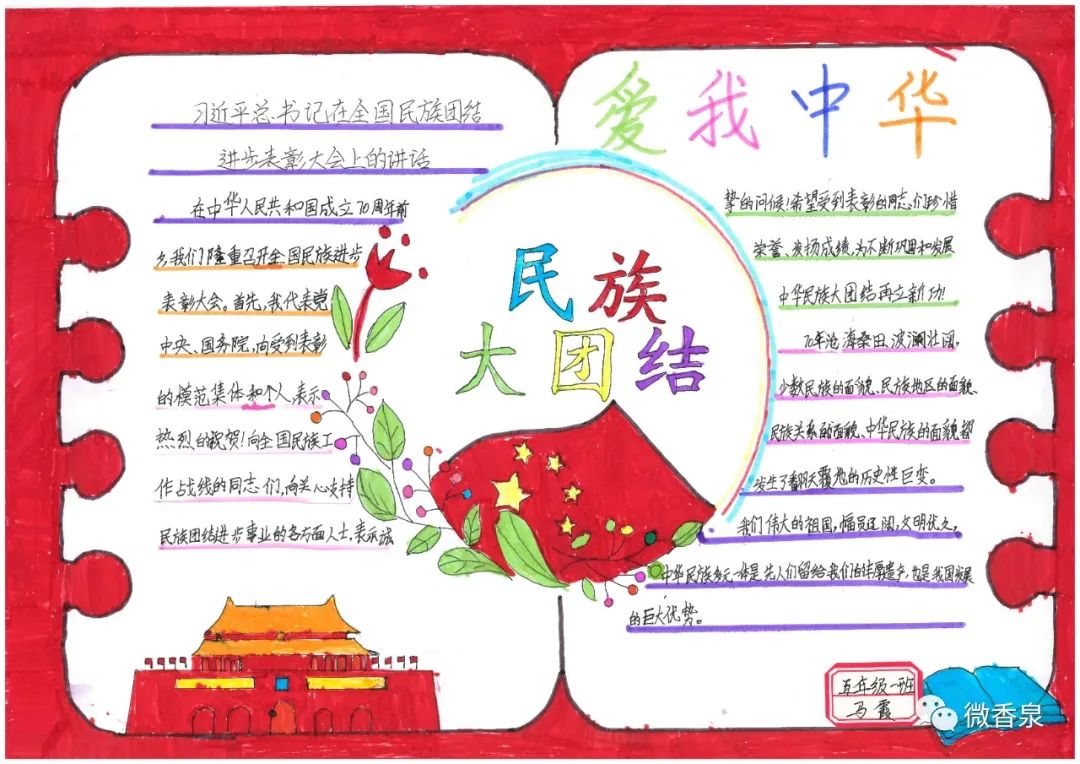 爱我中华
习近平总书记在全国民族团结
进步表彰大会上的讲话
在中华人民共和国成立70周年前
夕,我们隆重召开全国民族进步
表彰大会。首先,我代表党
中央、国务院,向受到表彰
的模范集体和个人,表示
热烈的祝贺!向全国民族工
作战线的同志们,向关心支持
民族团结进步事业的各方面人士,表示诚
民族
大团结
挚的问候!希望受到表彰的同志们珍惜
荣誉、发扬成绩,为不断巩固和发展
中华民族大团结再立新功!
70年沧海桑田、波澜壮阔,
少数民族的面貌、民族地区的面貌、
民族关系的面貌、中华民族的面貌都
发生了翻天覆地的历史性巨变。
我们伟大的祖国,幅员辽阔,文明悠久,
中华民族多元一体是先人们留给我们的丰厚遗产,也是我国发展
的巨大优势。
五年级一班
马霞
微香泉